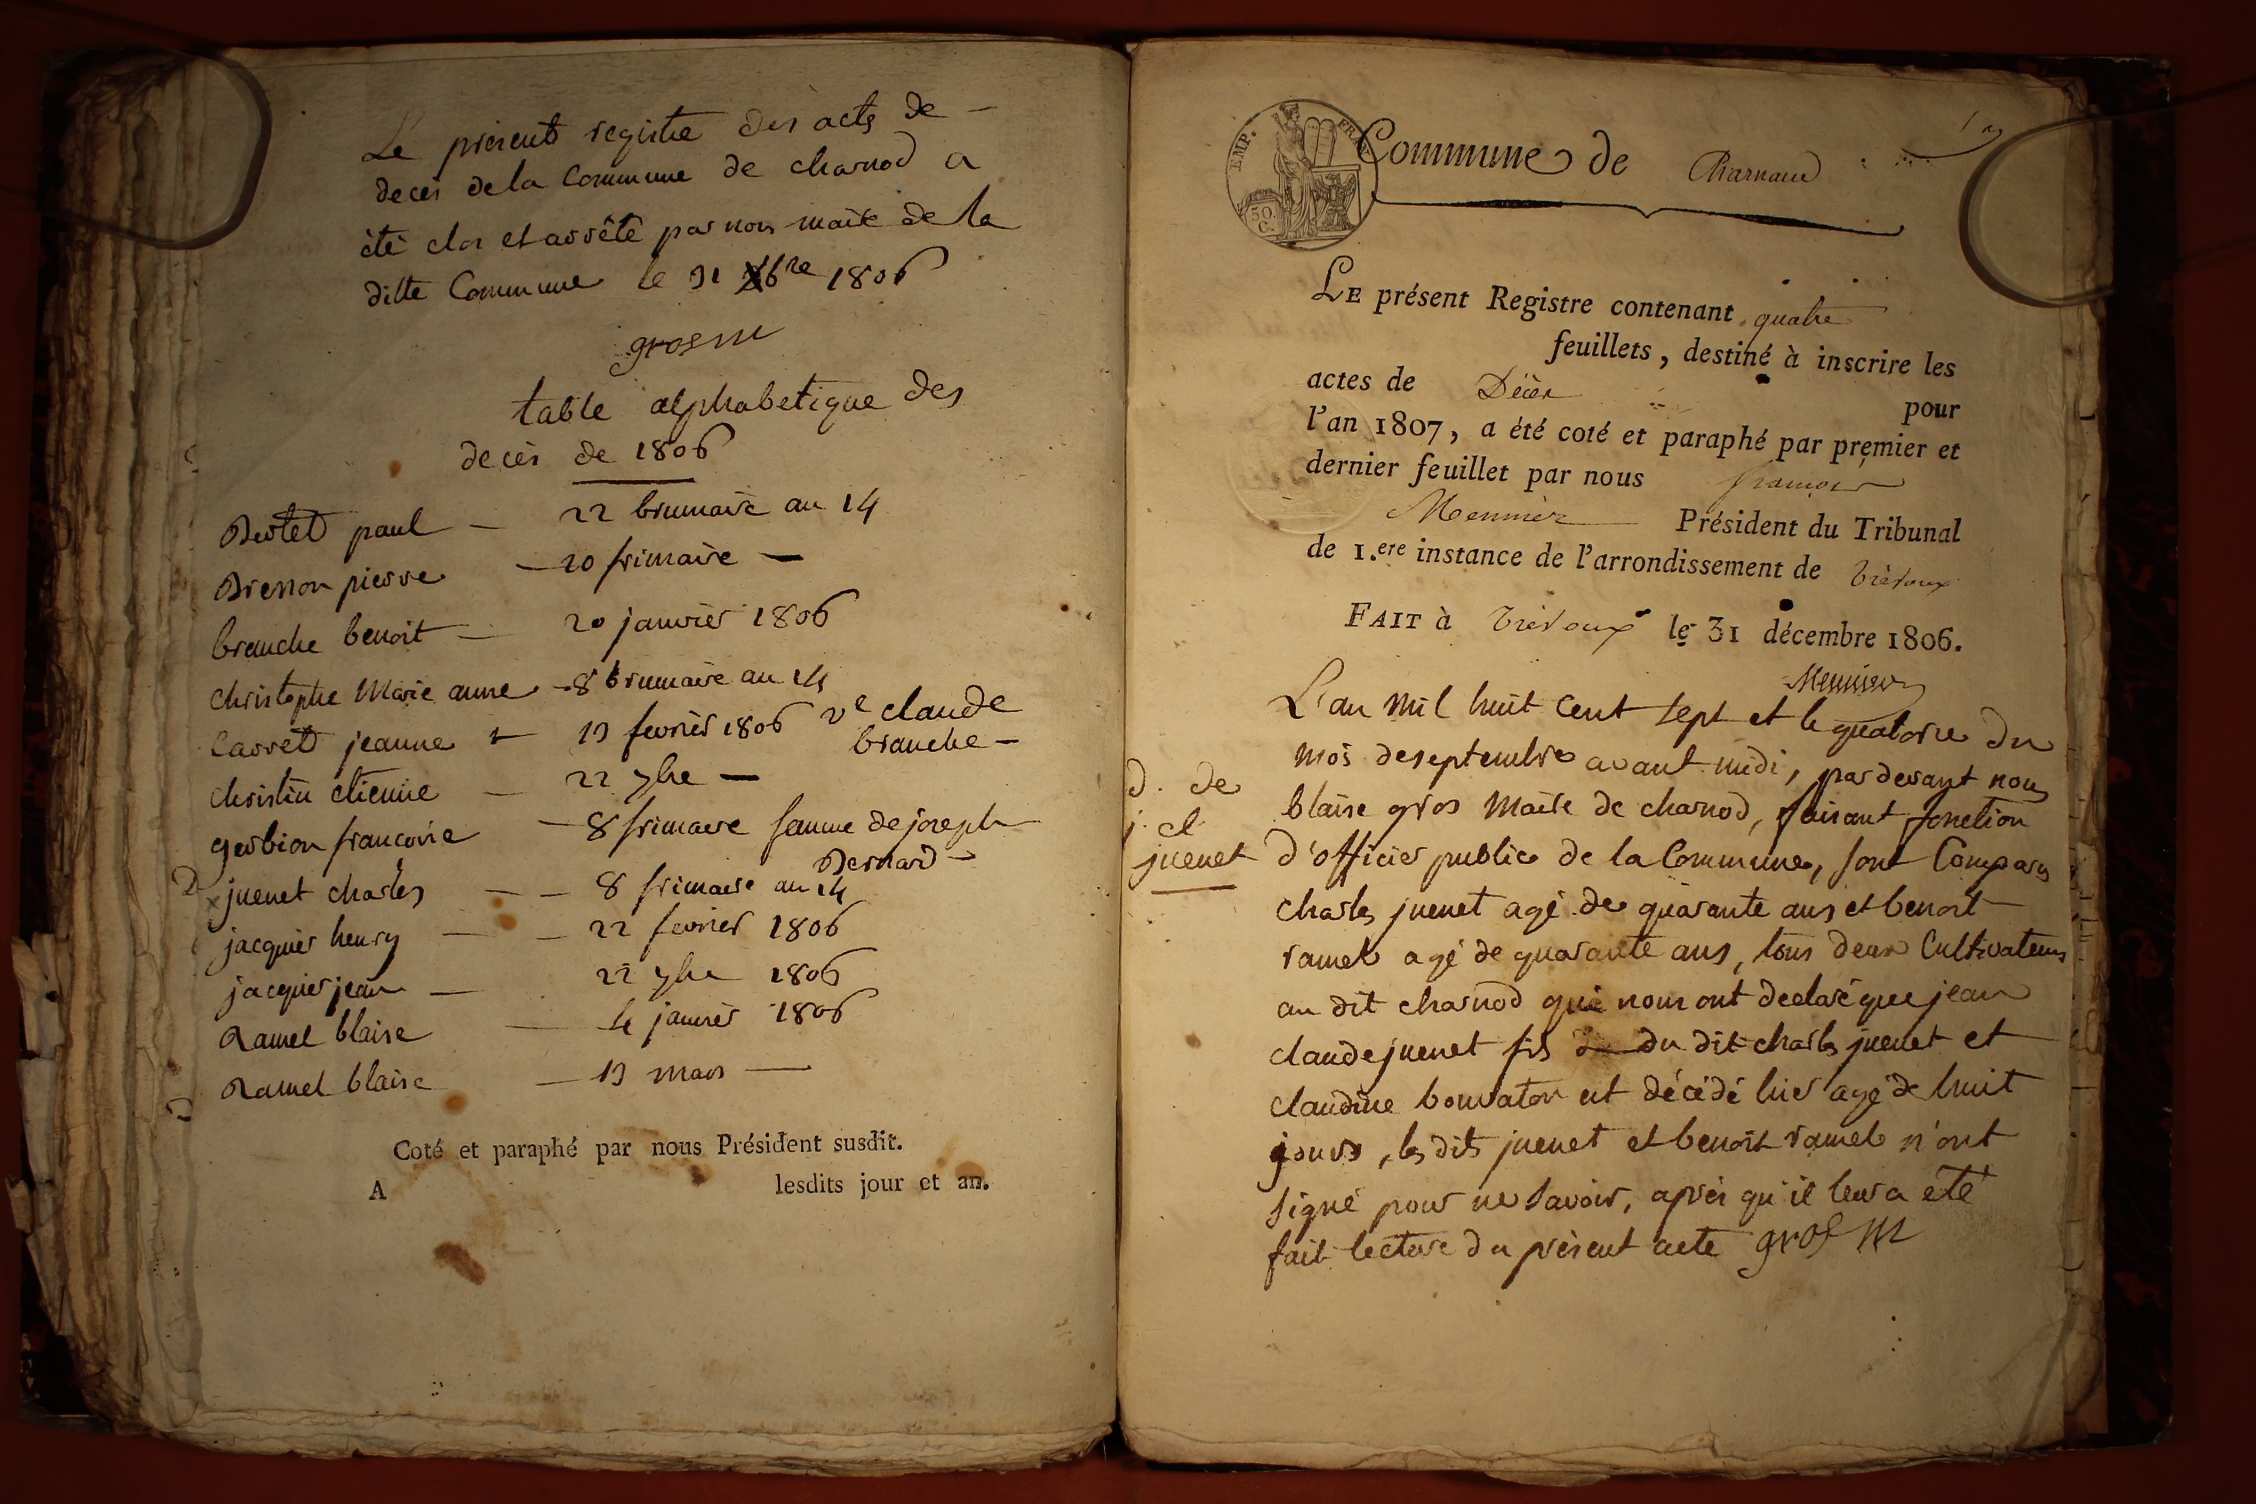 Le présent registre des acts de
deces de la Commune de charnod a
été clos et arrêté par nous maire de la
ditte Commune le 31 Xbre 1806
gros m
table alphabetique des
deces de 1806
Bertet paul - 22 brumaire an 14
Bresson pierre - 20 frimaire -
branche benoit - 20 janvier 1806
christophe Marie anne - 8 brumaire an 14
Carret jeanne - 13 fevrier 1806 ve claude
branche -
christin etienne - 22 7bre -
gerbion francoise - 8 frimaire femme de joseph
Bernard -
juenet charles - - 8 frimaire an 14
jacquier henry - - 22 fevrier 1806
jacquier jean - 22 7bre 1806
Ramel blaise - 4 janvier 1806
Ramel blaise - 13 mars -
Coté et paraphé par nous Président susdit.
A lesdits jour et an.
EMP. FRA
50.
C.
Commune de Charnaud
LE présent Registre contenant quatre
feuillets, destiné à inscrire les
actes de Décès pour
l'an 1807, a été coté et paraphé par premier et
dernier feuillet par nous françois
Meunier Président du Tribunal
de 1.ere instance de l'arrondissement de Trévoux
FAIT à Trévoux le 31 décembre 1806.
Meunier
L'an mil huit cent sept et le quatorze du
mois de septembre avant midi, pardevant nous
blaise gros Maire de charnod, faisant fonction
d'officier public de la Commune, sont Comparus
charles juenet agé de quarante ans et benoit
ramel agé de quarante ans, tous deux Cultivateurs
au dit charnod qui nous ont declaré que jean
claude juenet fils du dit charles juenet et
claudine bouvaton est décédé hier agé de huit
jours, les dits juenet et benoit ramel n'ont
signé pour ne savoir, après qu'il leur a été
fait lecture du présent acte gros m
d. de
j. cl.
juenet